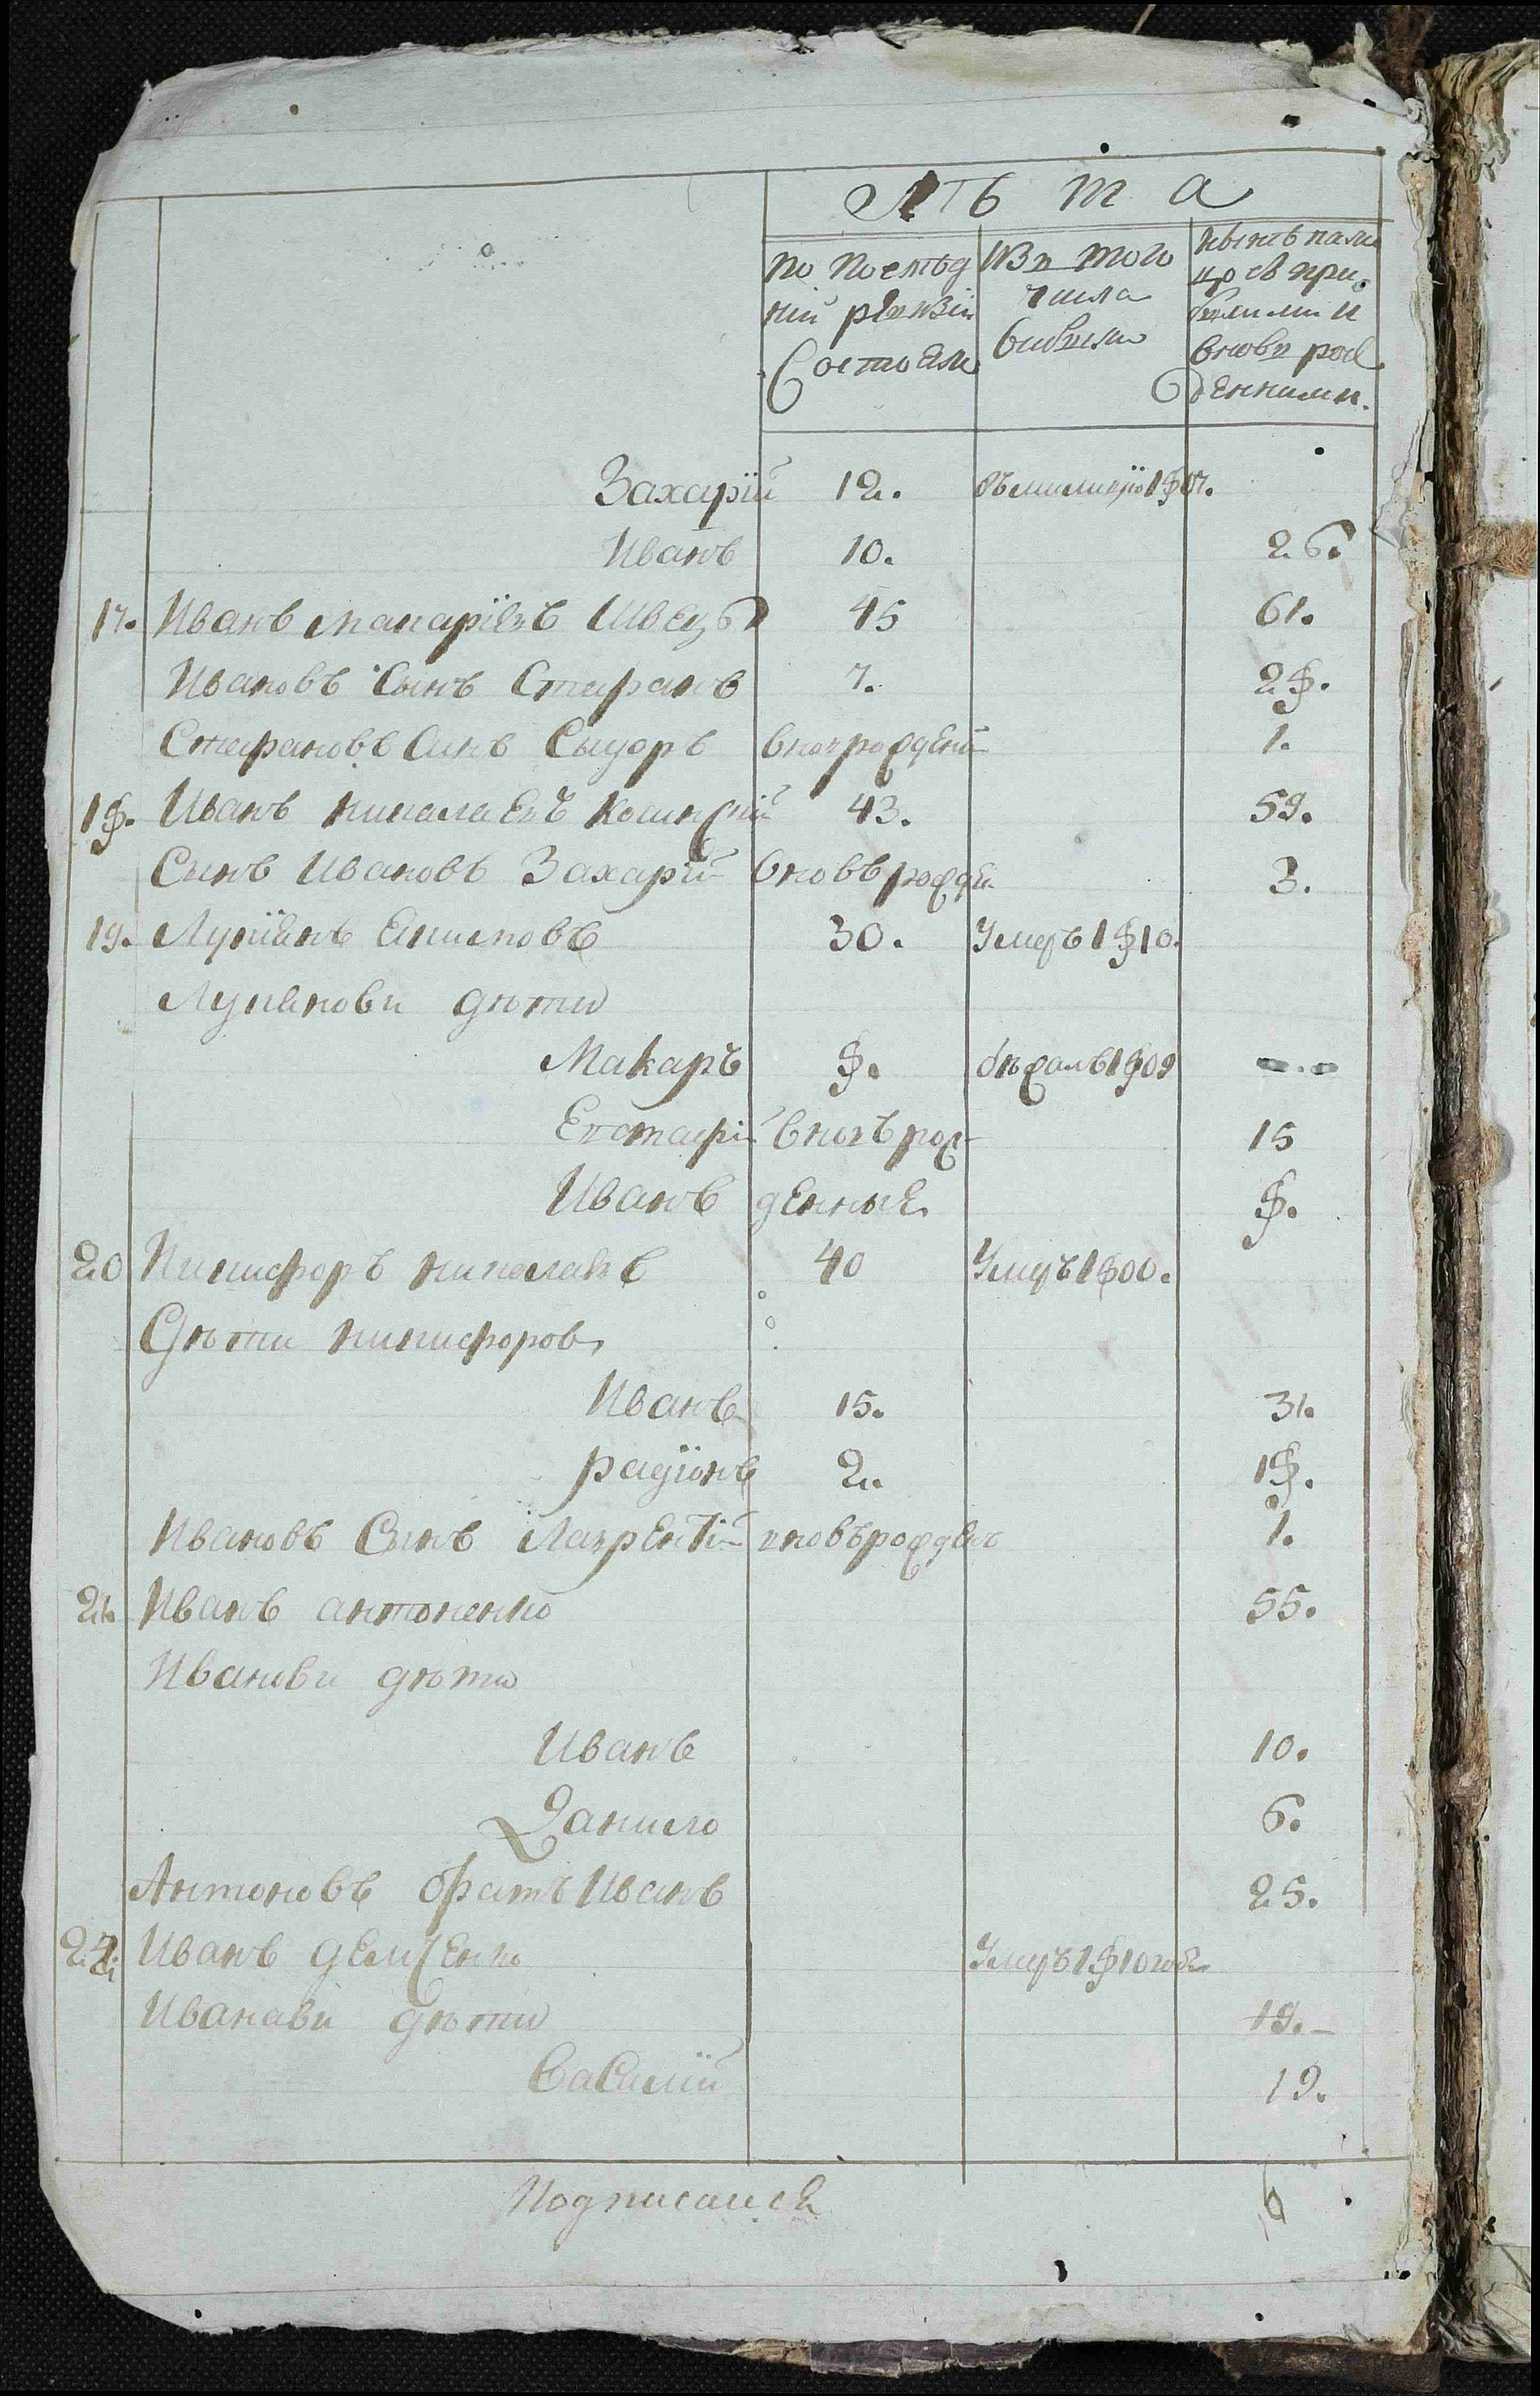 Лѣта
по послѣд Изъ того нынѣ налы
ній ревизіи числа цо съ при
Состояли выбыли былыми и
вновь рож
денними.
Захарій 12. въ милицію 1807.
Иванъ 10. 26.
17. Иванъ Макаріевъ Швецъ 45 61.
Ивановъ Сынъ Стефанъ 7. 28.
Стефановъ Синъ Сыдоръ вновърожденъ 1.
18. Иванъ николаевъ Косинскій 43. 59.
Сынъ Ивановъ Захарій вновъ рожден 3.
19. Лукіянъ 30. Умеръ 1810.
Лукянови дѣти
Макаръ 8. бѣжалъ 1809
Евстафій вновъ рож 15
Иванъ денные 8.
20 Никифоръ николаевъ 40 Умеръ 1800.
Дѣти никифоровы
Иванъ 15. 31.
радіонъ 2. 18.
Ивановъ Сынъ Лаврентій вновърожденъ 1.
21. Иванъ антоненко 55.
Иванови дѣти
Иванъ 10.
Данило 6.
Антоновъ братъ Иванъ 25.
22. Иванъ демченко Умеръ 1810 года
Иванави дѣти 19.
Василій 19.
Подписался